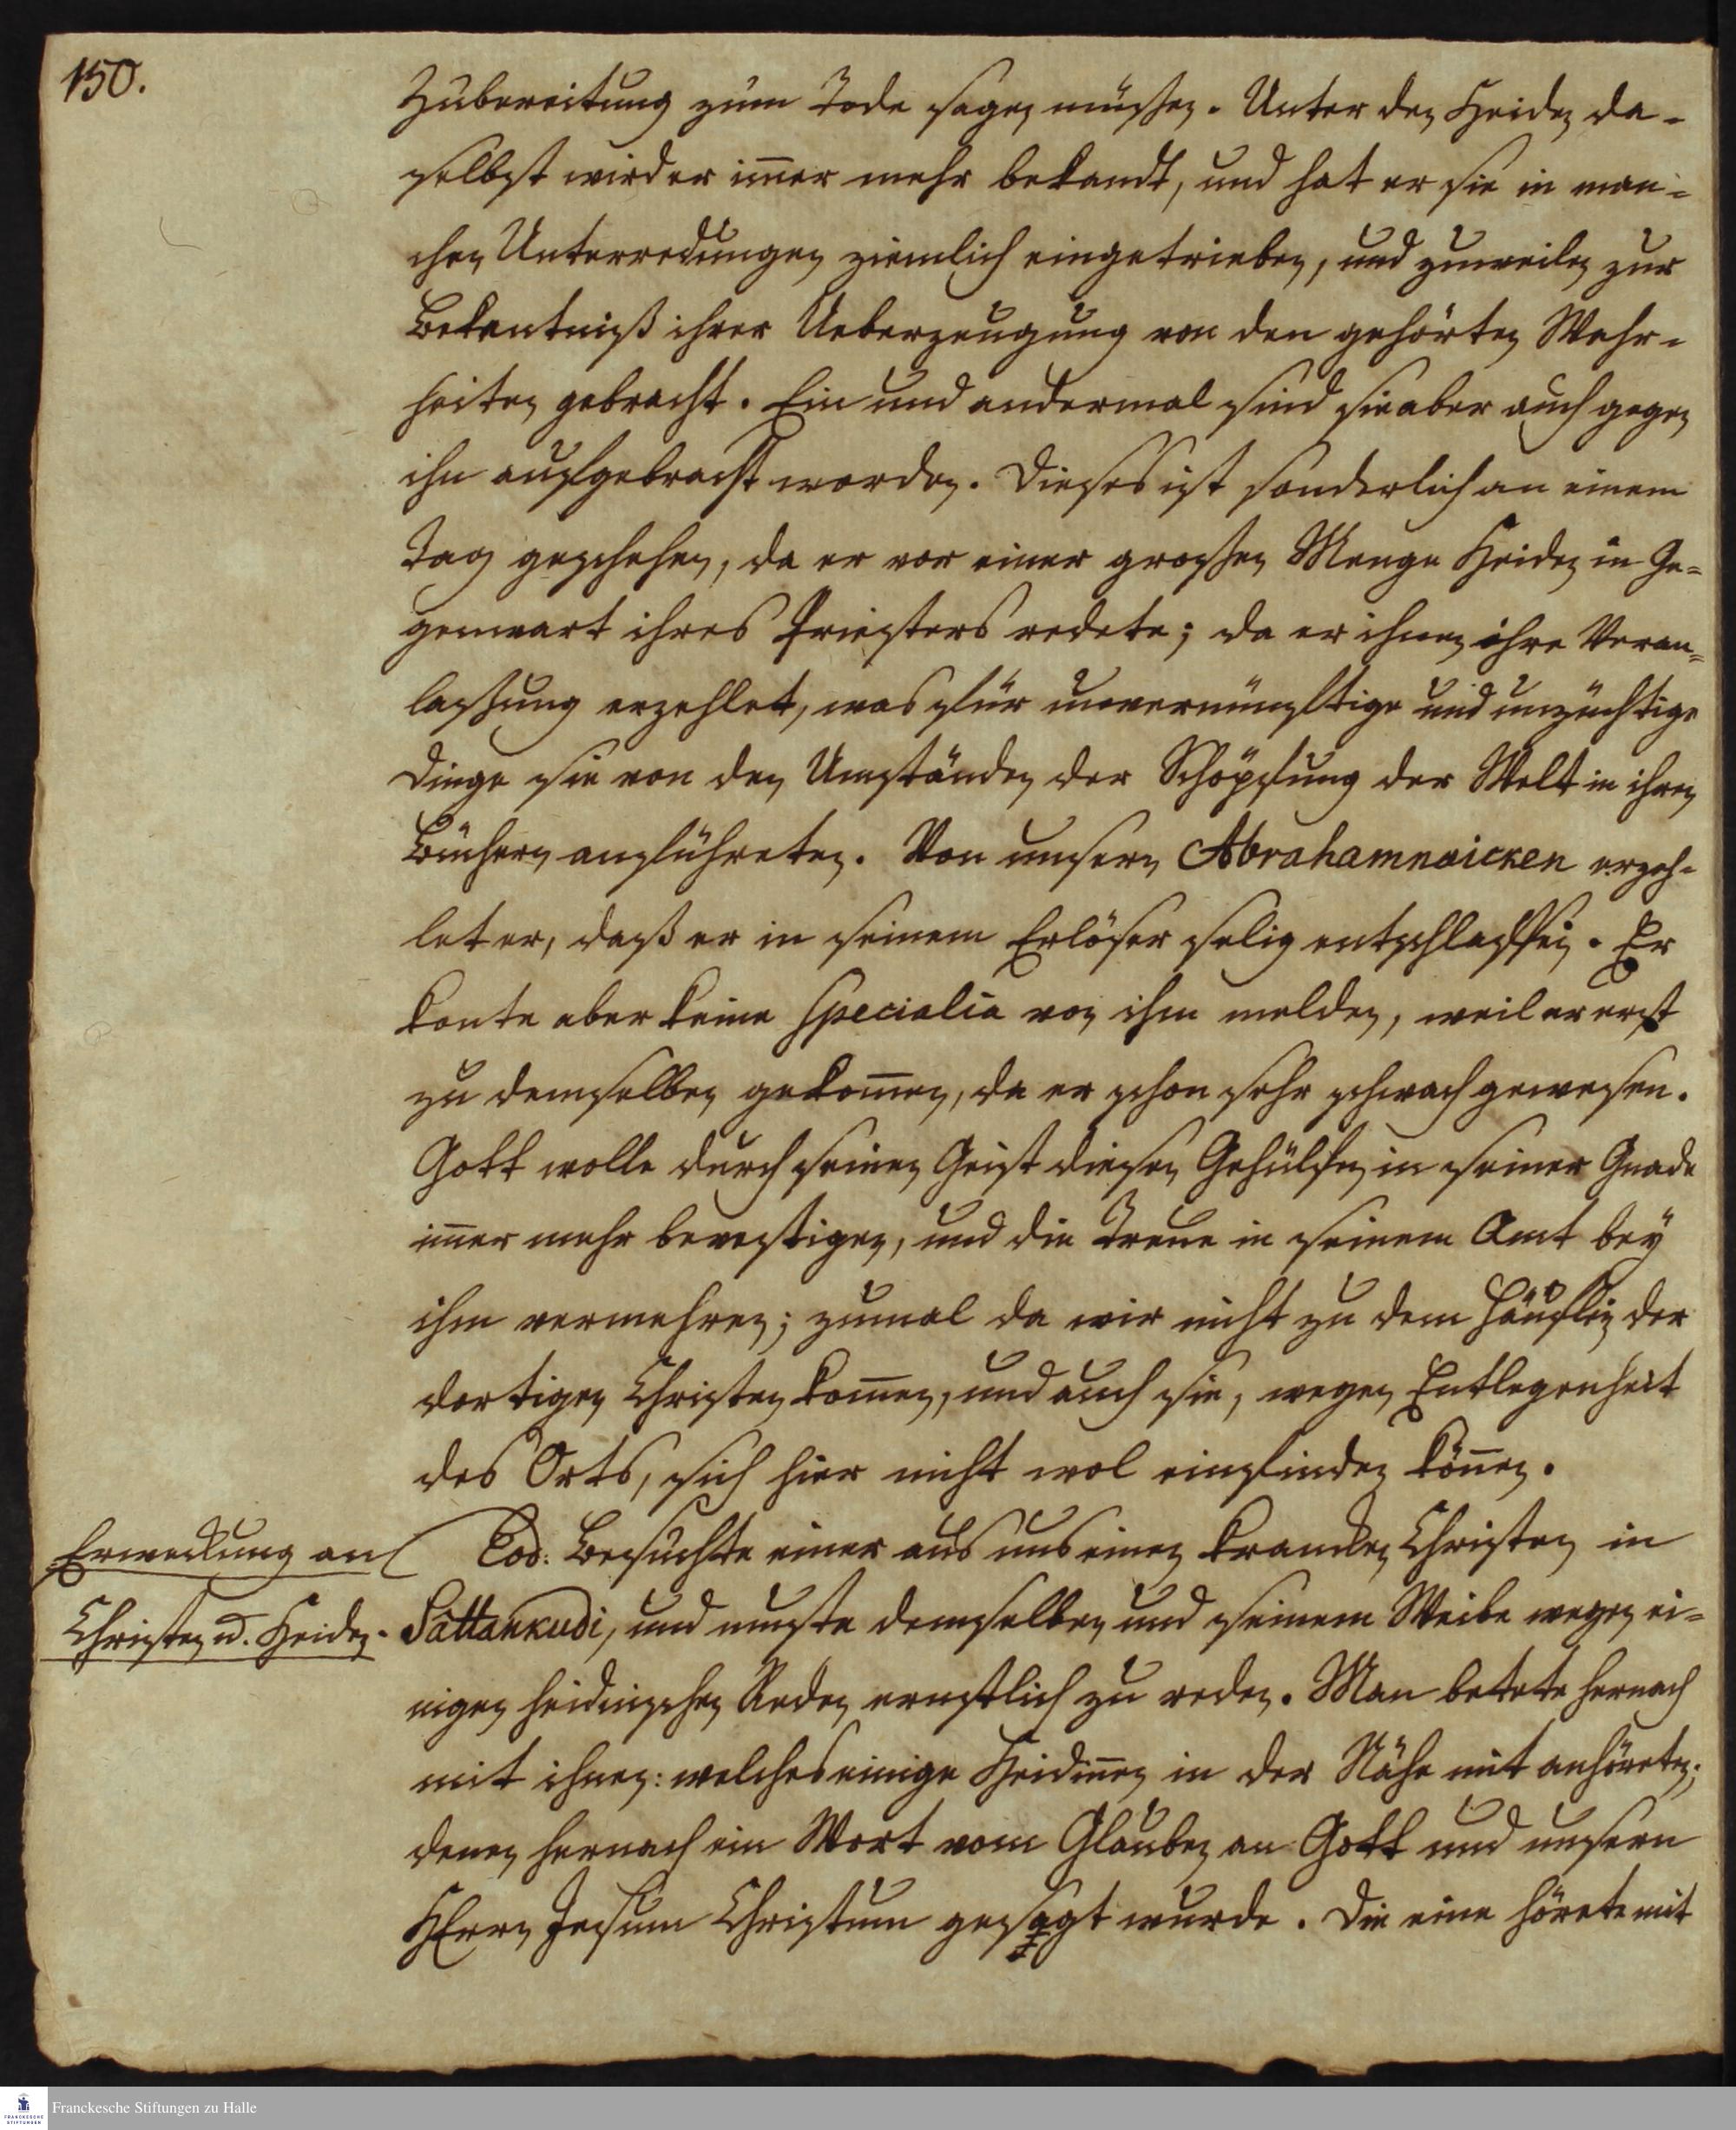 150.
Zubereitung zum Tode sagen müssen. Unter den Heiden da-
selbst wird er im̄er mehr bekandt, und hat er sie in man-
chen Unterredungen ziemlich eingetrieben, und zuweilen zur
Bekantniß ihrer Ueberzeugung von den gehörten Wahr-
heiten gebracht. Ein und andermal sind sie aber auch gegen
ihn aufgebracht worden. Dieses ist sonderlich an einem
Tag geschehen, da er vor einer grossen Menge Heiden in Ge-
genwart ihres Priesters redete; da er ihnen ihre Veran-
lassung erzehlet, was für unvernünftige und unzüchtige
Dinge sie von den Umständen der Schöpfung der Welt in ihren
Büchern anführeten. Von unsern Abrahamnaicken erzeh-
let er, daß er in seinem Erlöser selig entschlaffen. Er
konte aber keine specialia von ihm melden, weil er erst
zu demselben gekom̄en, da er schon sehr schwach gewesen.
Gott wolle durch seinen Geist diesen Gehülfen in seiner Gnade
im̄er mehr bevestigen, und die Treue in seinem Amt bey
ihm vermehren; zumal da wir nicht zu dem Häuflein der
dortigen Christen kom̄en, und auch sie, wegen Entlegenheit
des Orts, sich hier nicht wol einfinden kön̄en.
Erweckung an
Christen u. Heiden.
Eod. Besuchte einer aus uns einen krancken Christen in
Sattankudi, und muste demselben und seinem Weibe wegen ei-
nigen heidnischen Reden ernstlich zu reden. Man betete hernach
mit ihnen: welches einige Heidin̄en in der Nähe mit anhöreten;
denen hernach ein Wort vom Glauben an Gott und unsern
HErrn Jesum Christum gesagt wurde. Die eine hörete mit
Franckesche Stiftungen zu Halle
FRANCKESCHE
STIFTUNGEN